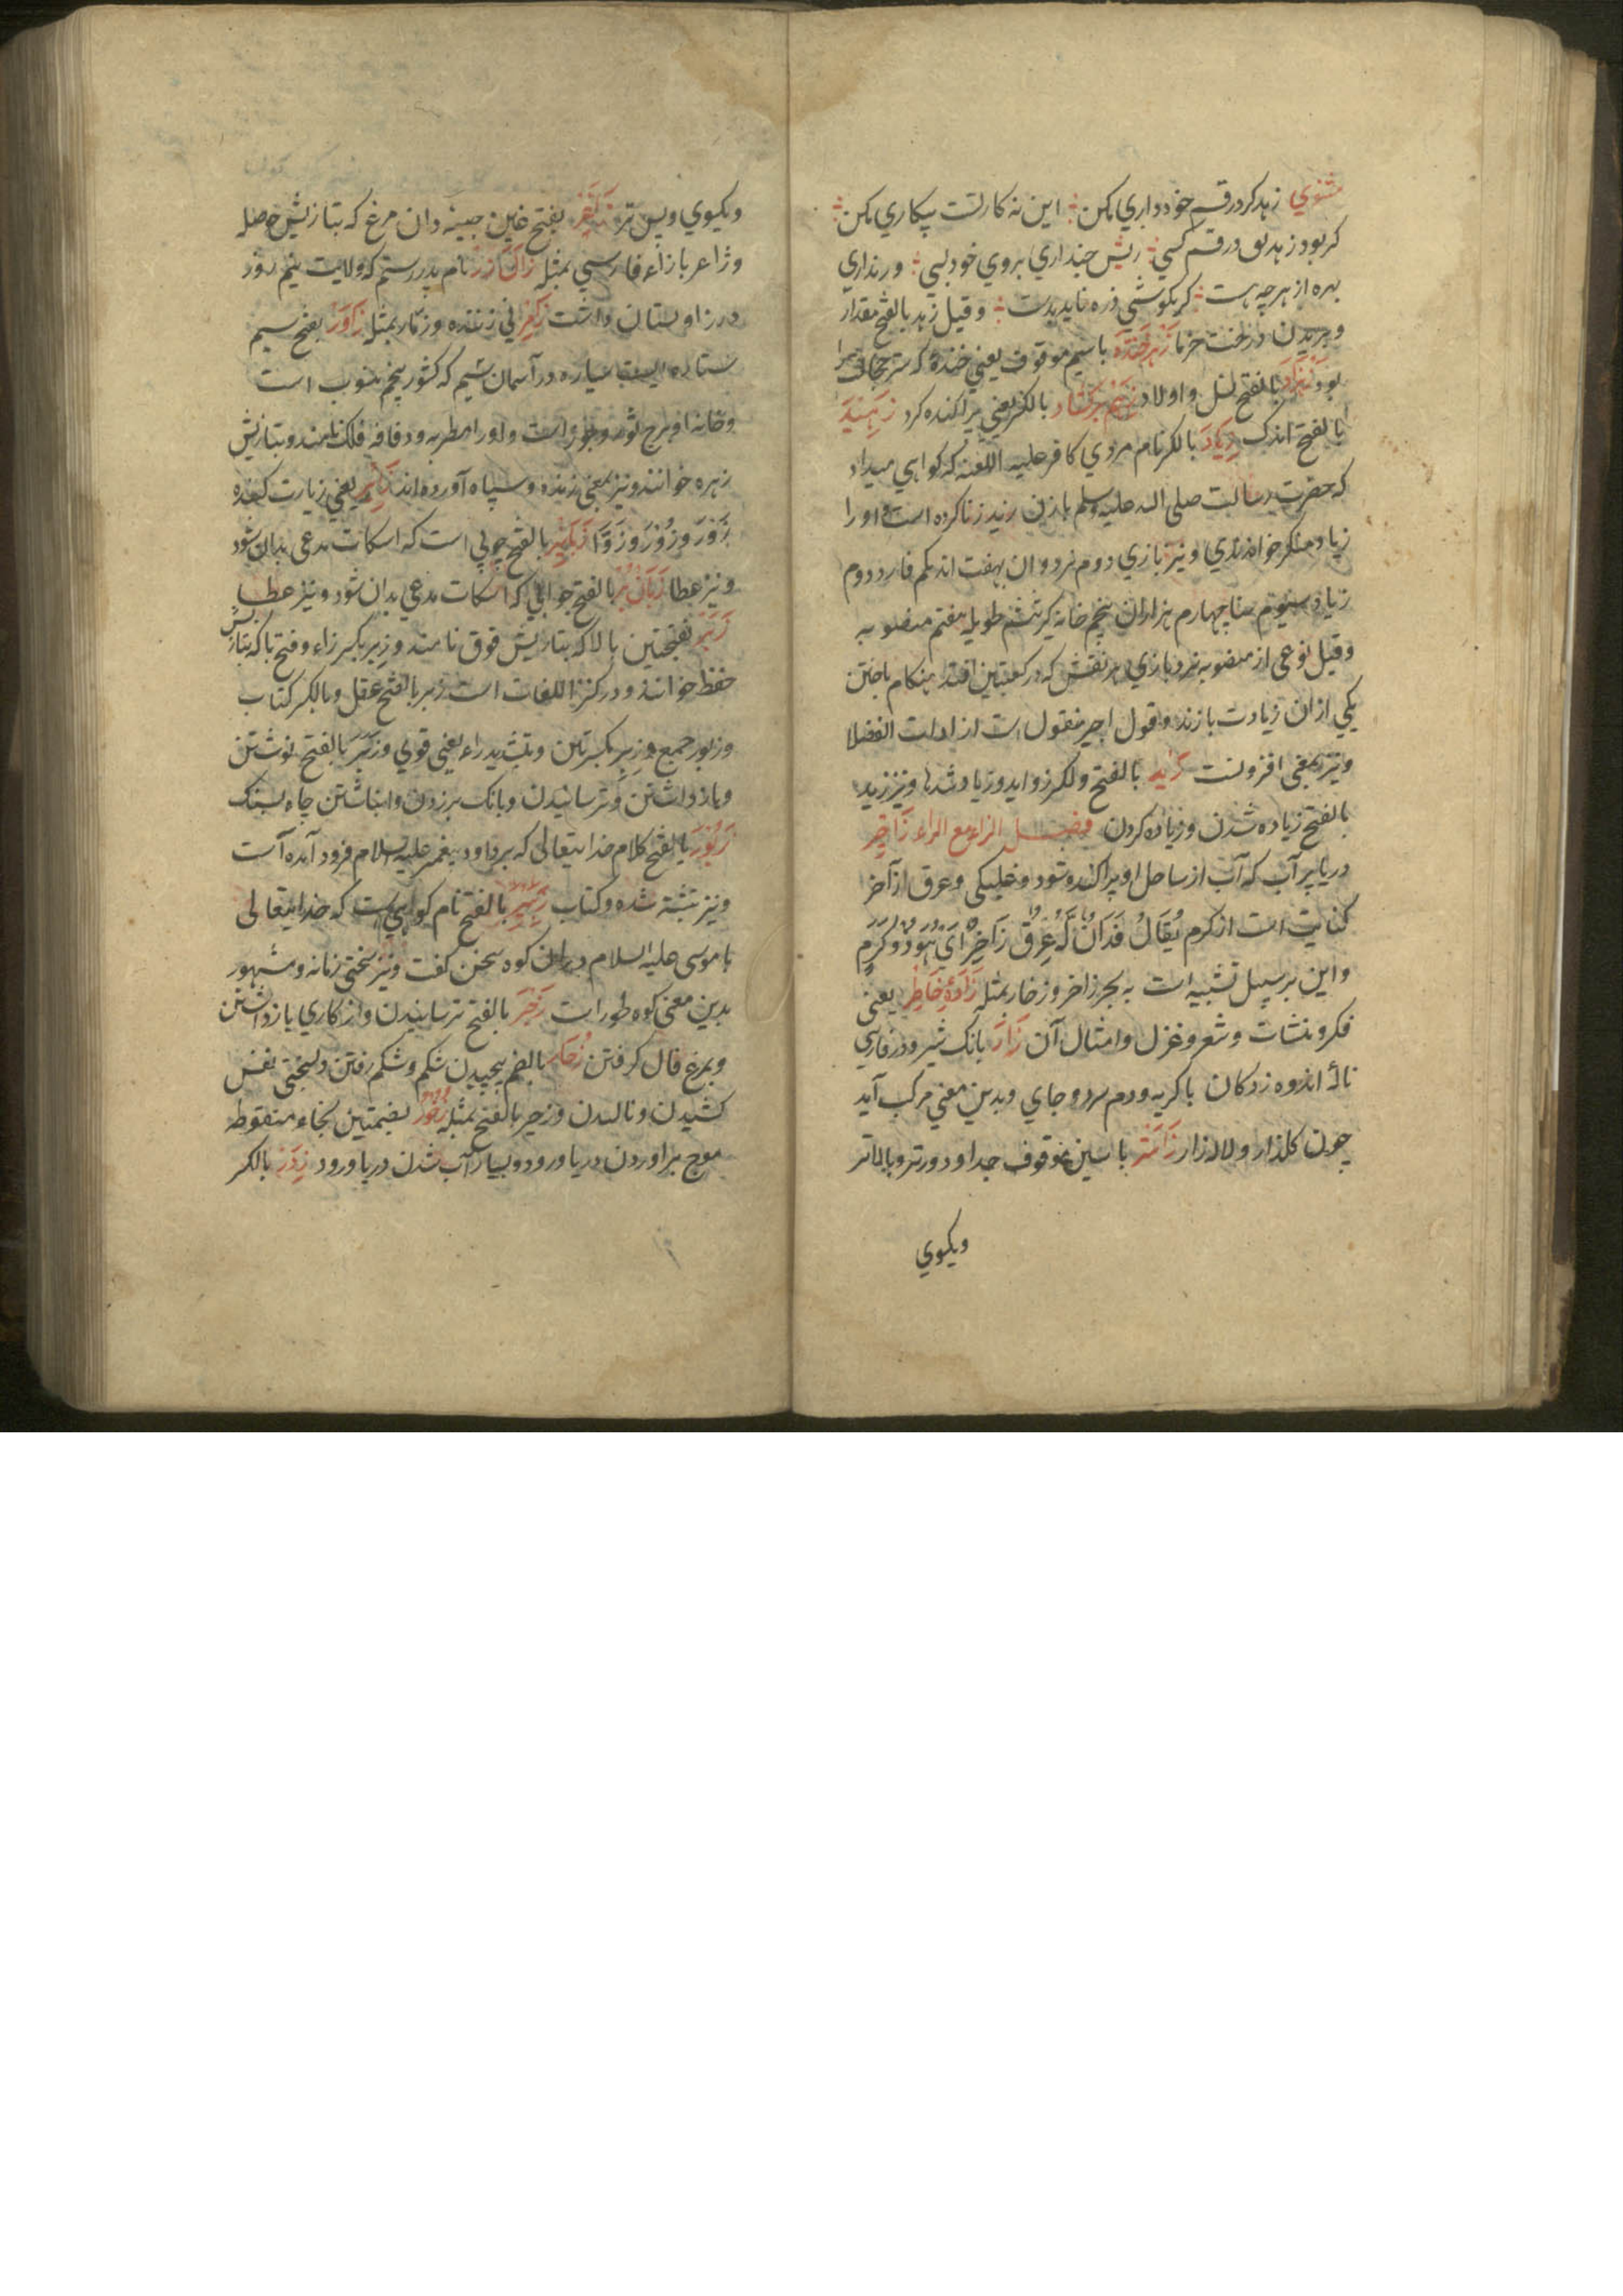 مثنوي زهد كردر قسم خود داري مكن اين نه كارتست پيكاري مكن
كر بود زهدت در قسم كسي ريش خنداري بروي خود بسي ورنداري
بهره از هرچه هست كر بكوشي ذره نايد بدست وقيل زهد بالفتح مقدار
وبريدن درخت خرما زهرخنده با سيم موقوف يعني خنده كه
بود بالفتح نسل واولاد بالكسر يعني پراكنده كرد زهيد
بالفتح اندك زياد بالكسر نام مردي كافر عليه اللعنه كه كواهي ميداد
كه حضرت رسالت صلى الله عليه وسلم بازن زيد زنا كرده است او را
زياد منكر خواندندي ونيز بازي دوم نرد وان بهفت اند يكم فارد دوم
زياد سيوم ستا چهارم هزاران پنجم خانه كير ششم طويله هفتم منصوبه
وقيل نوعي از منصوبه نرد بازي هر نقش كه در كعبتين افتد هنكام باختن
يكي ازان زيادت بازند وقول اخير منقول است از ادات الفضلا
ونيز بمعني افزونست زيد بالفتح والكسر زوايد وزيا وشدها ونيز زيد
بالفتح زياده شدن وزياده كردن فصل الزاء مع الراء زاخر
دريا پر آب كه آب از ساحل او پراكنده شود وغليكي وعرق زاخر
كنايت است از كرم يقال فلان له عرق زاخر اي هو ذو كرم
واين برسبيل تشبيه است به بحر زاخر وزخار بمثله زاده خاطر يعني
فكر ومنشات وشعر وغزل وامثال آن زار بانك شير ودر فارسي
نالهٔ اندوه زدكان با كريه ودم سرد وجاي وبدين معني مركب آيد
چون كلزار ولاله زار زاستر با سين موقوف جدا ودورتر وبالاتر
ويكسوي
ويكسوي وپس تر زاغر بفتح غين جينه دان مرغ كه بتازيش حوصله
وژاغر با زاء فارسي بمثله زال زر نام پدر رستم كه ولايت نيم روز
در زاولستان داشت زامر ني زننده وزمار بمثله زاور بفتح سيم
ستاره ايست سياره در آسمان سيم كه كشور پنجم منسوب است
وخانه او برج ثور وجوزا است واورا مطربه ودفافه فلك نامند وبتازيش
زهره خوانند ونيز بمعني زنده وسپاه آورده اند زاير يعني زيارت كننده
زور وزوز وزوا زبكير بالفتح چوبي است كه اسكات مدعي بدان شود
ونيز عطا زبان بر بالفتح جوابي كه اسكات مدعي بدان شود ونيز عطا
زبر بفتحتين بالا كه بتازيش فوق نامند وزبر بكسر زاء وفتح با كه بتازيش
حفظ خوانند ودر كنز اللغات است زبر بالفتح عقل وبالكسر كتاب
وزبور جمع وزبر بكسرتين وتشديد راء يعني قوي وزبر بالفتح نوشتن
وبازداشتن وترسانيدن وبانك برزدن وانباشتن چاه بسنك
زبور بالفتح كلام خدايتعالى كه برداود پيغمبر عليه السلام فرود آمده است
ونيز نبشته شده وكتاب زبير بالفتح نام كوهي است كه خدايتعالى
با موسى عليه السلام دران كوه سخن كفت ونيز سختي زمانه ومشهور
بدين معني كوه طور است زجر بالفتح ترسانيدن واز كاري بازداشتن
وبمرغ فال كرفتن زحار بالضم پيچيدن شكم وشكم رفتن وبسختي نفس
كشيدن وناليدن وزحير بالفتح بمثله زخور بضمتين بخاء منقوطه
موج براوردن دريا ورود وبسيار آب شدن دريا ورود زدر بالكسر